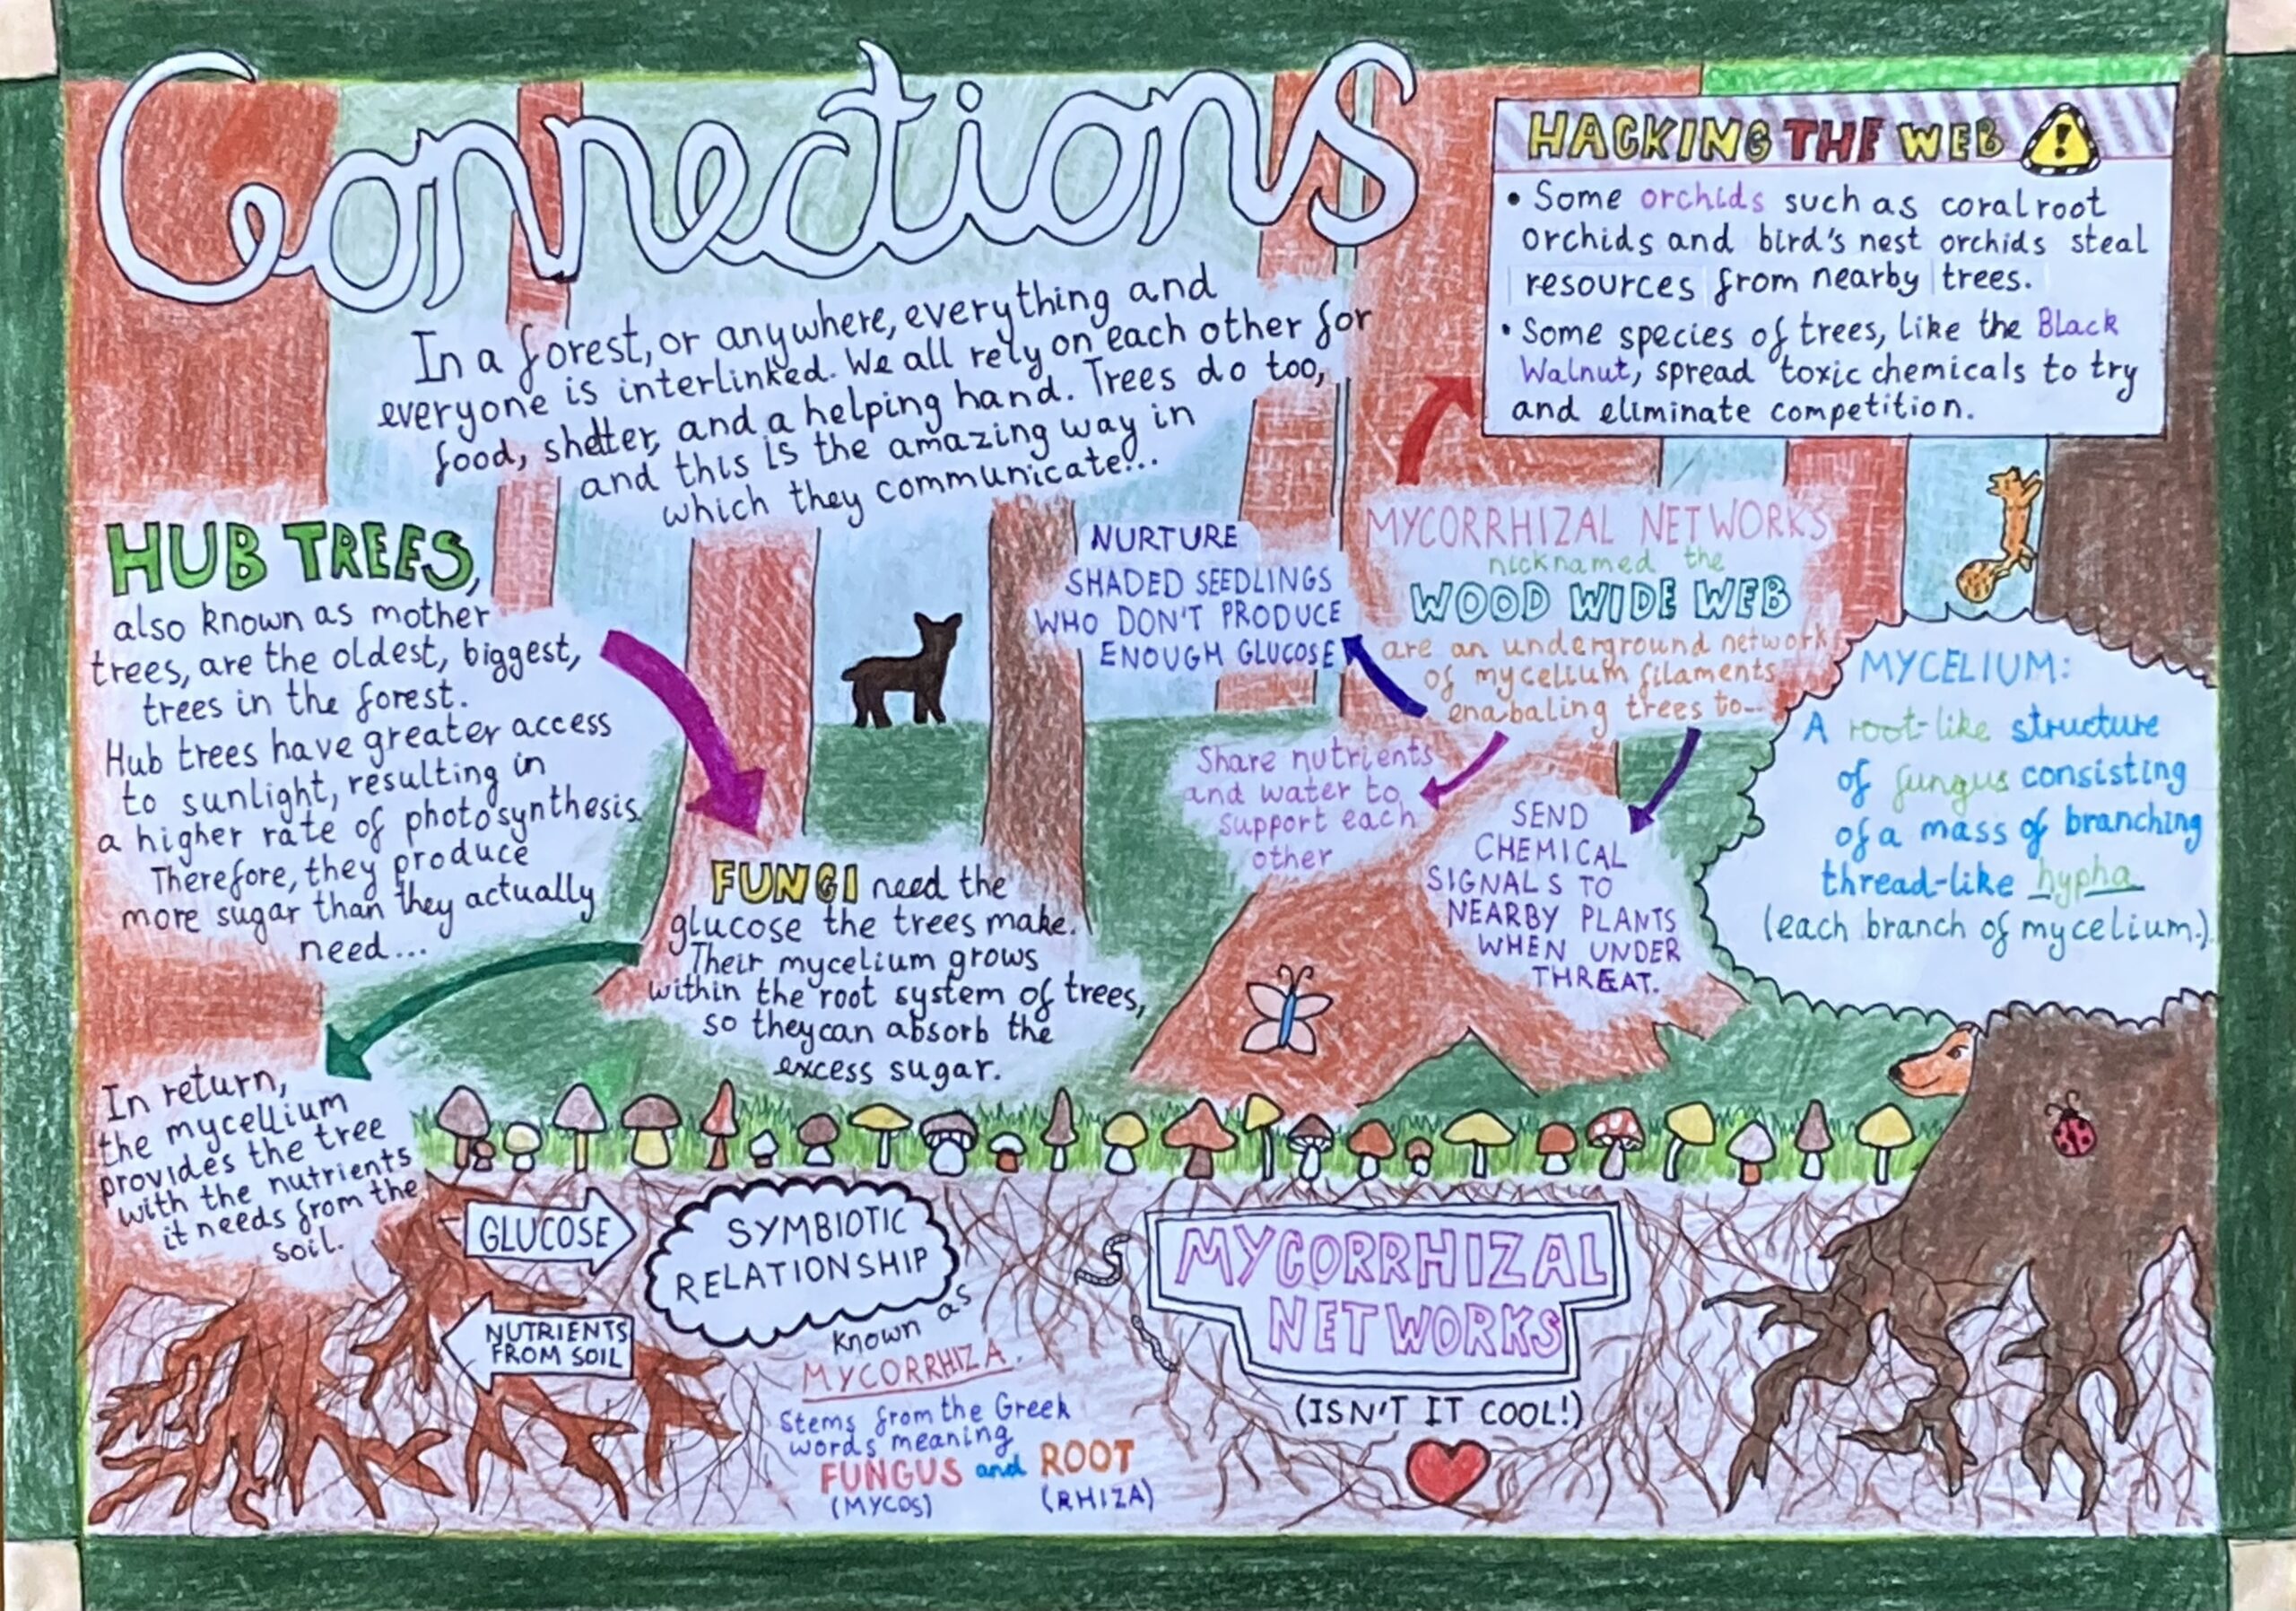 Connections
In a forest, or anywhere, everything and
everyone is interlinked. We all rely on each other for
food, shelter, and a helping hand. Trees do too,
and this is the amazing way in
which they communicate!...
HACKING THE WEB !
• Some orchids such as coralroot
orchids and bird's nest orchids steal
resources from nearby trees.
• Some species of trees, like the Black
Walnut, spread toxic chemicals to try
and eliminate competition.
HUB TREES,
also known as mother
trees, are the oldest, biggest,
trees in the forest.
Hub trees have greater access
to sunlight, resulting in
a higher rate of photosynthesis.
Therefore, they produce
more sugar than they actually
need...
FUNGI need the
glucose the trees make.
Their mycelium grows
within the root system of trees,
so they can absorb the
excess sugar.
In return,
the mycellium
provides the tree
with the nutrients
it needs from the
soil.
MYCORRHIZAL NETWORKS
nicknamed the
WOOD WIDE WEB
are an underground network
of mycelium filaments
enabaling trees to...
NURTURE
SHADED SEEDLINGS
WHO DON'T PRODUCE
ENOUGH GLUCOSE
Share nutrients
and water to
support each
other
SEND
CHEMICAL
SIGNALS TO
NEARBY PLANTS
WHEN UNDER
THREAT.
MYCELIUM:
A root-like structure
of fungus consisting
of a mass of branching
thread-like hypha
(each branch of mycelium.)
GLUCOSE
NUTRIENTS
FROM SOIL
SYMBIOTIC
RELATIONSHIP
known as
MYCORRHIZA.
Stems from the Greek
words meaning
FUNGUS and ROOT
(MYCOS) (RHIZA)
MYCORRHIZAL
NETWORKS
(ISN'T IT COOL!)